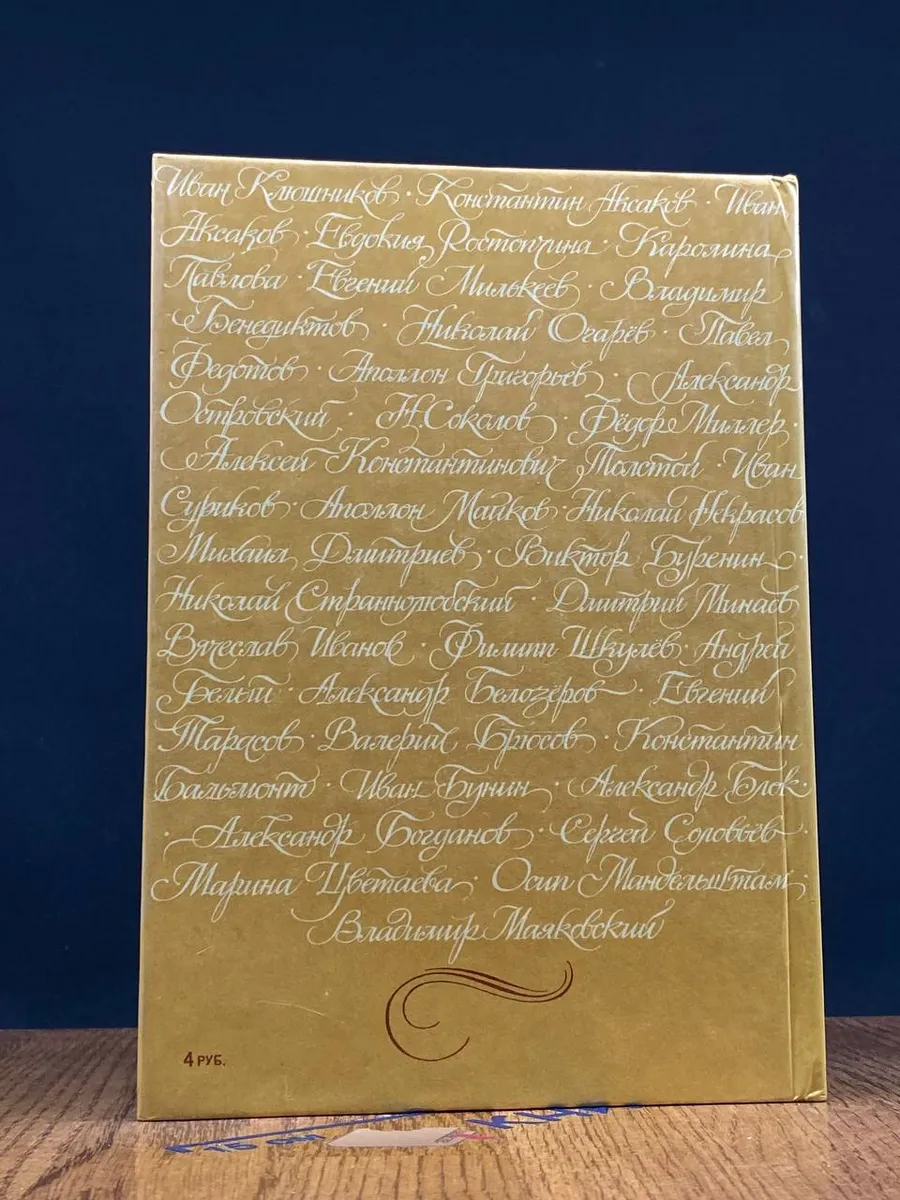 Иван Клюшников · Константин Аксаков · Иван
Аксаков · Евдокия Ростопчина · Каролина
Павлова · Евгений Милькеев · Владимир
Бенедиктов · Николай Огарёв · Павел
Федотов · Аполлон Григорьев · Александр
Островский · Н. Соколов · Фёдор Миллер ·
Алексей Константинович Толстой · Иван
Суриков · Аполлон Майков · Николай Некрасов
Михаил Дмитриев · Виктор Буренин ·
Николай Страннолюбский · Дмитрий Минаев
Вячеслав Иванов · Филипп Шкулёв · Андрей
Белый · Александр Белозёров · Евгений
Тарасов · Валерий Брюсов · Константин
Бальмонт · Иван Бунин · Александр Блок ·
· Александр Богданов · Сергей Соловьёв ·
Марина Цветаева · Осип Мандельштам ·
Владимир Маяковский
4 РУБ.
15 см